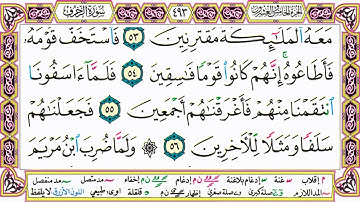 الجزء الخامس والعشرون ٤٩٣ سورة الزخرف
مَعَهُ الْمَلَٰٓئِكَةُ مُقْتَرِنِينَ ٥٣ فَاسْتَخَفَّ قَوْمَهُۥ
فَأَطَاعُوهُ ۚ إِنَّهُمْ كَانُوا۟ قَوْمًا فَٰسِقِينَ ٥٤ فَلَمَّآ ءَاسَفُونَا
انتَقَمْنَا مِنْهُمْ فَأَغْرَقْنَٰهُمْ أَجْمَعِينَ ٥٥ فَجَعَلْنَٰهُمْ
سَلَفًا وَمَثَلًا لِّلْءَاخِرِينَ ٥٦ وَلَمَّا ضُرِبَ ابْنُ مَرْيَمَ